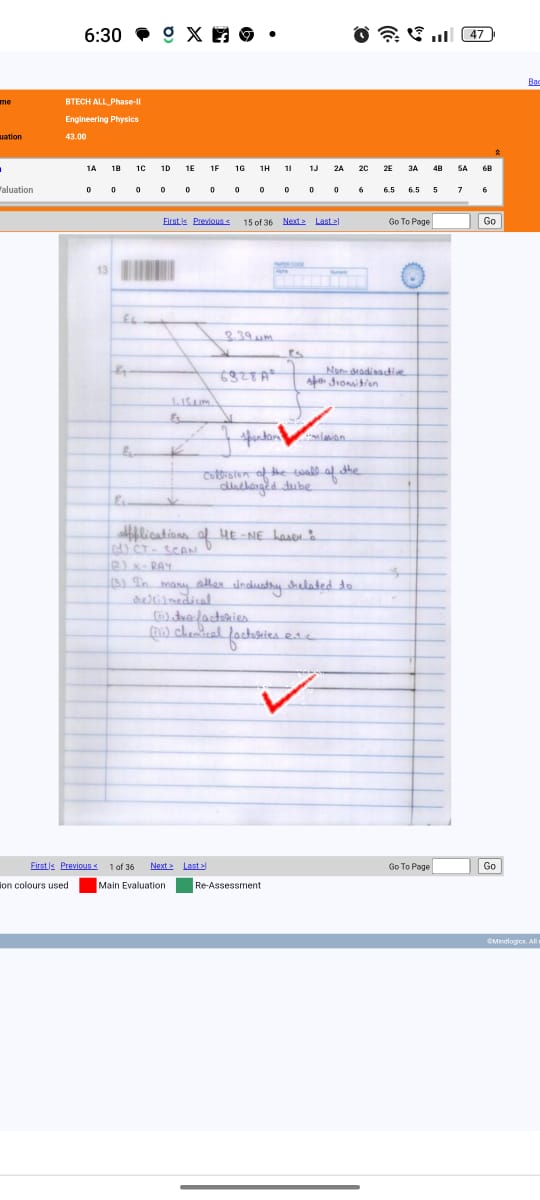 6:30
47
Bac
me
BTECH ALL_Phase-II
Engineering Physics
uation
43.00
1A 1B 1C 1D 1E 1F 1G 1H 1I 1J 2A 2C 2E 3A 4B 5A 6B
/aluation 0 0 0 0 0 0 0 0 0 0 0 6 6.5 6.5 5 7 6
First |< Previous < 15 of 36 Next > Last >| Go To Page Go
13
PAPER CODE
Alpha Numeric
E6
3.39 um
E5
6328 A°
Non-dradioactive
transition
E4
1.15 um
E3
E2
Collision of the wall of the
discharged tube
E1
Applications of HE-NE Laser :
(1) CT - SCAN
(2) X - RAY
(3) In many other industry related to
medical
(ii) factories
(iii) chemical factories e.t.c
First |< Previous < 1 of 36 Next > Last >| Go To Page Go
ion colours used Main Evaluation Re-Assessment
©Mindlogicx. All